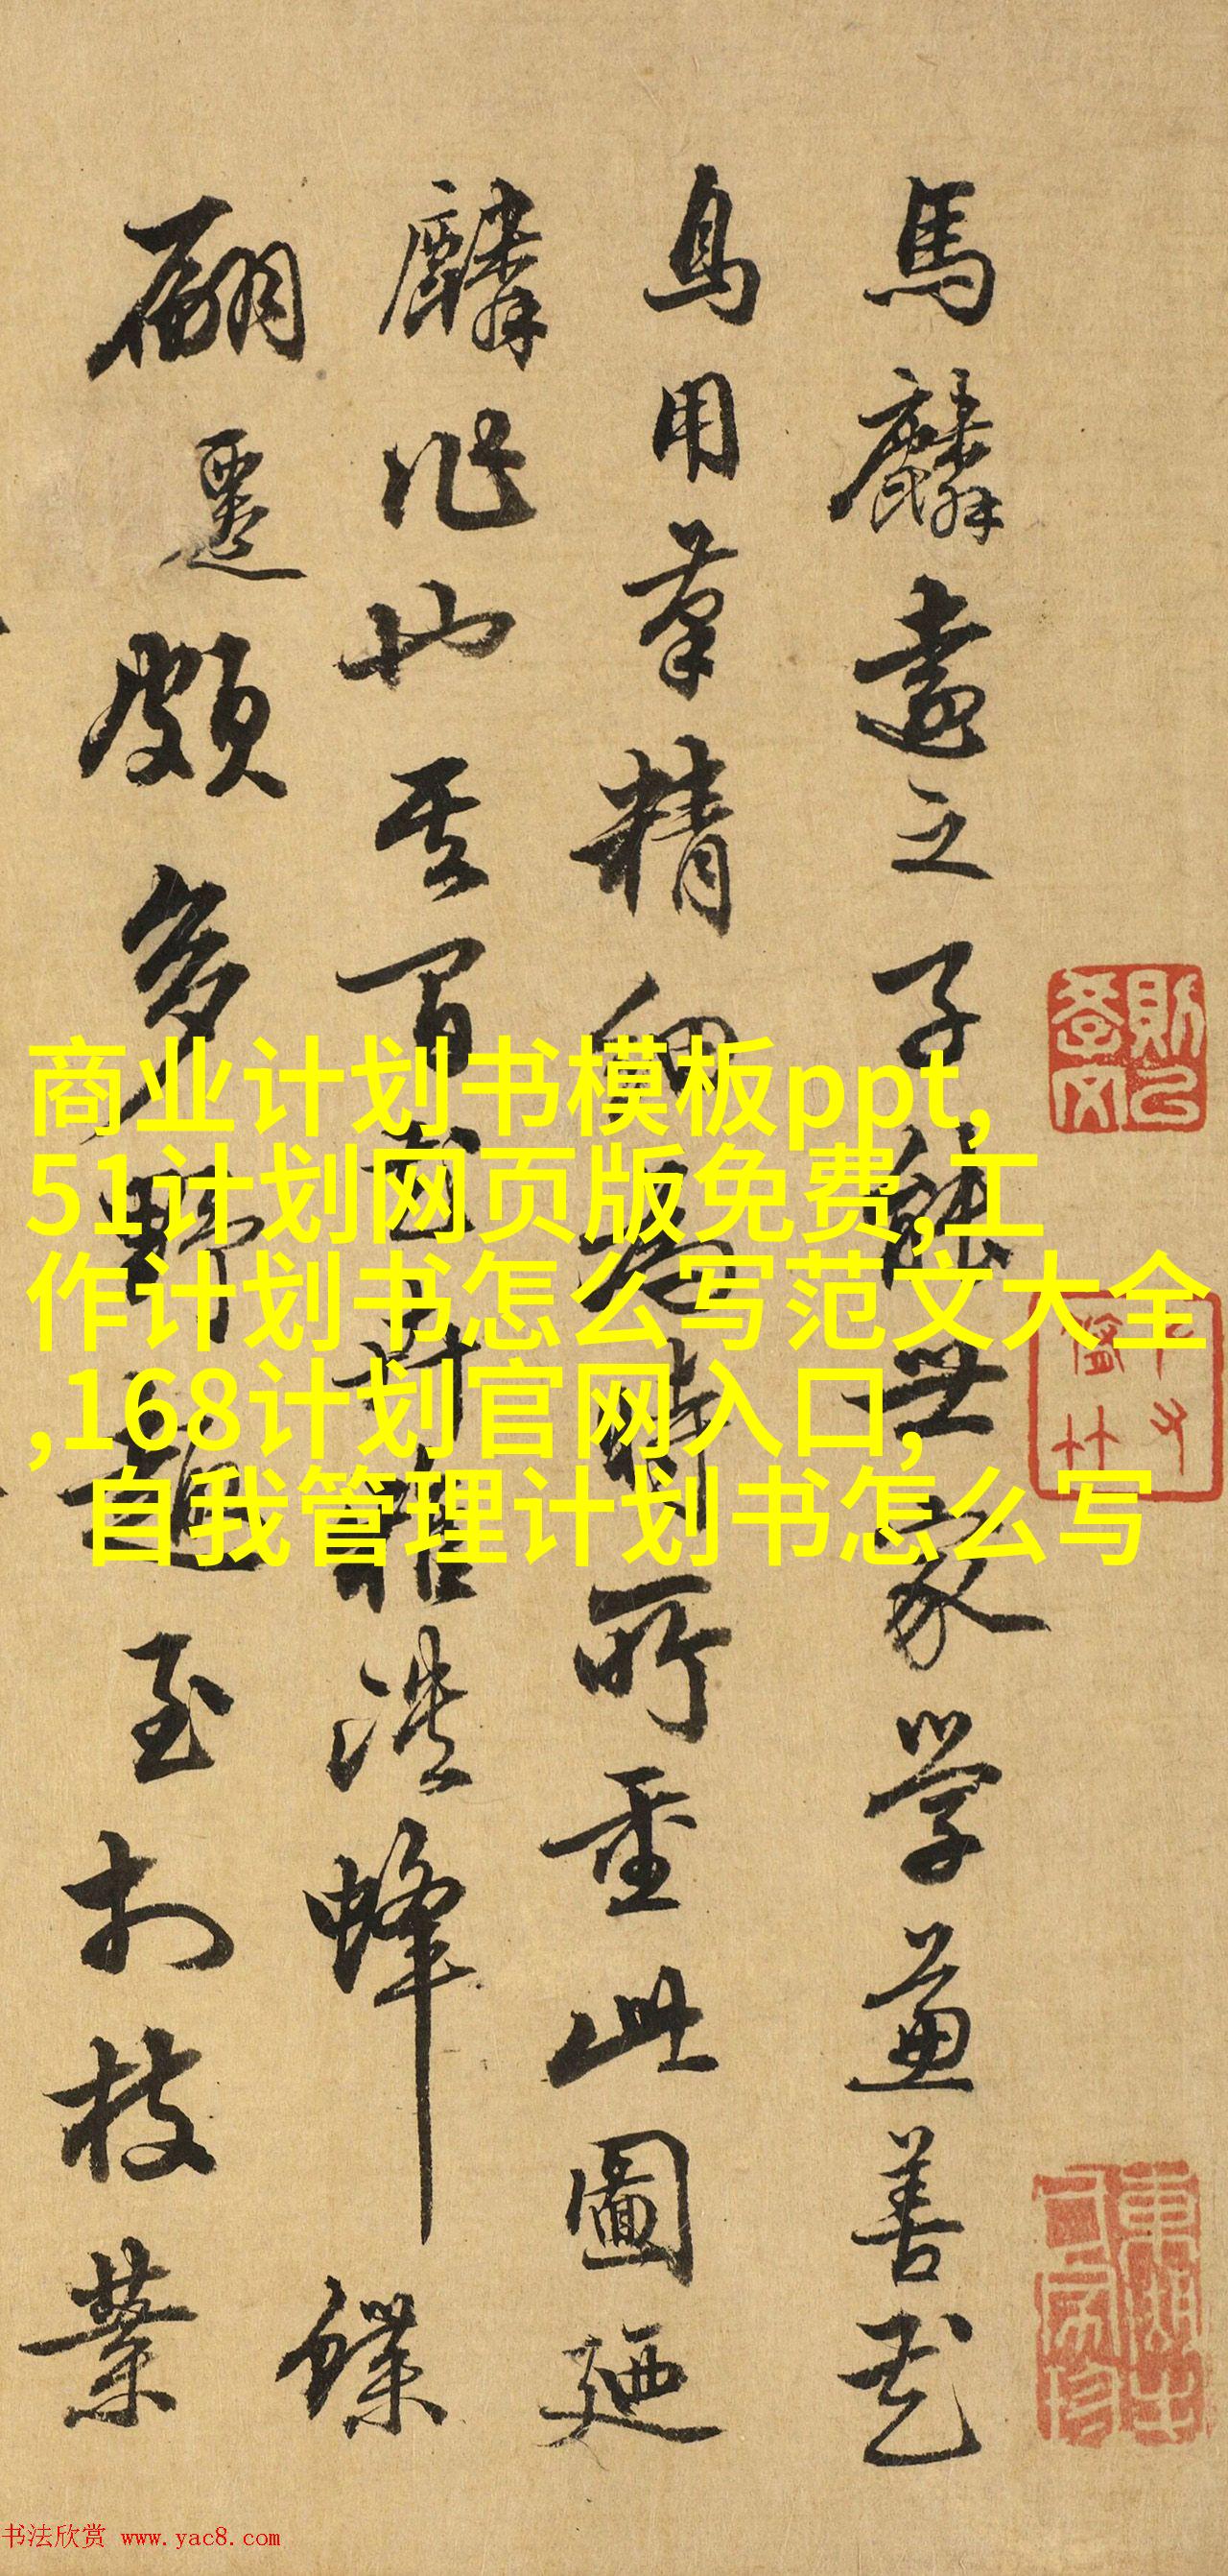 馬麟遠之子能世家學兼善花
鳥用筆精細為時所重此圖廼
麟作也其間卉蜂蝶
翩遷頗多野趣至扵枝葉
商业计划书模板ppt,
51计划网页版免费,工
作计划书怎么写范文大全
,168计划官网入口,
自我管理计划书怎么写
书法欣赏 www.yac8.com